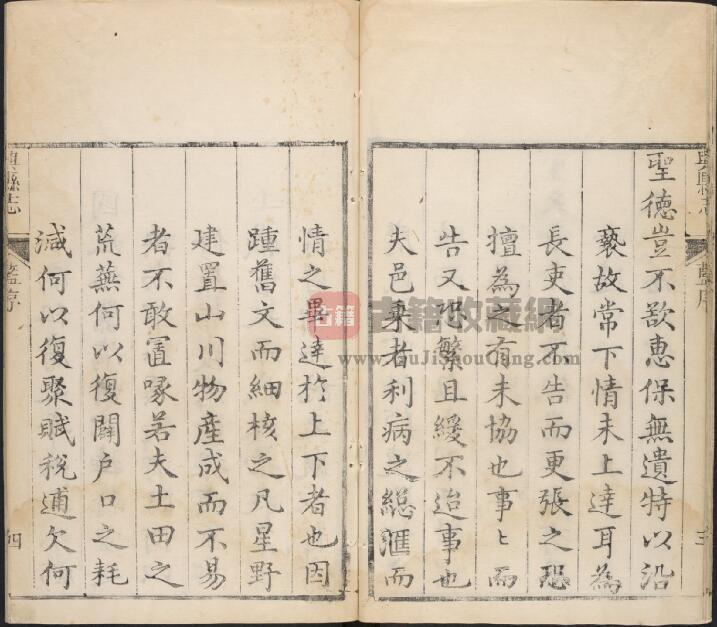 聖德豈不欲惠保無遺特以沿
褻故常下情未上達耳為
長吏者不告而更張之恐
擅為之有未協也事〻而
告又恐繁且緩不迨事也
夫邑乗者利病之総滙而
三
情之畢達於上下者也因
踵舊文而細核之凡星野
建置山川物産成而不易
者不敢置喙若夫土田之
荒蕪何以復闢户口之耗
減何以復聚賦稅逋欠何
縣志
序
四
古籍收藏網
www.GuJiShouCang.com